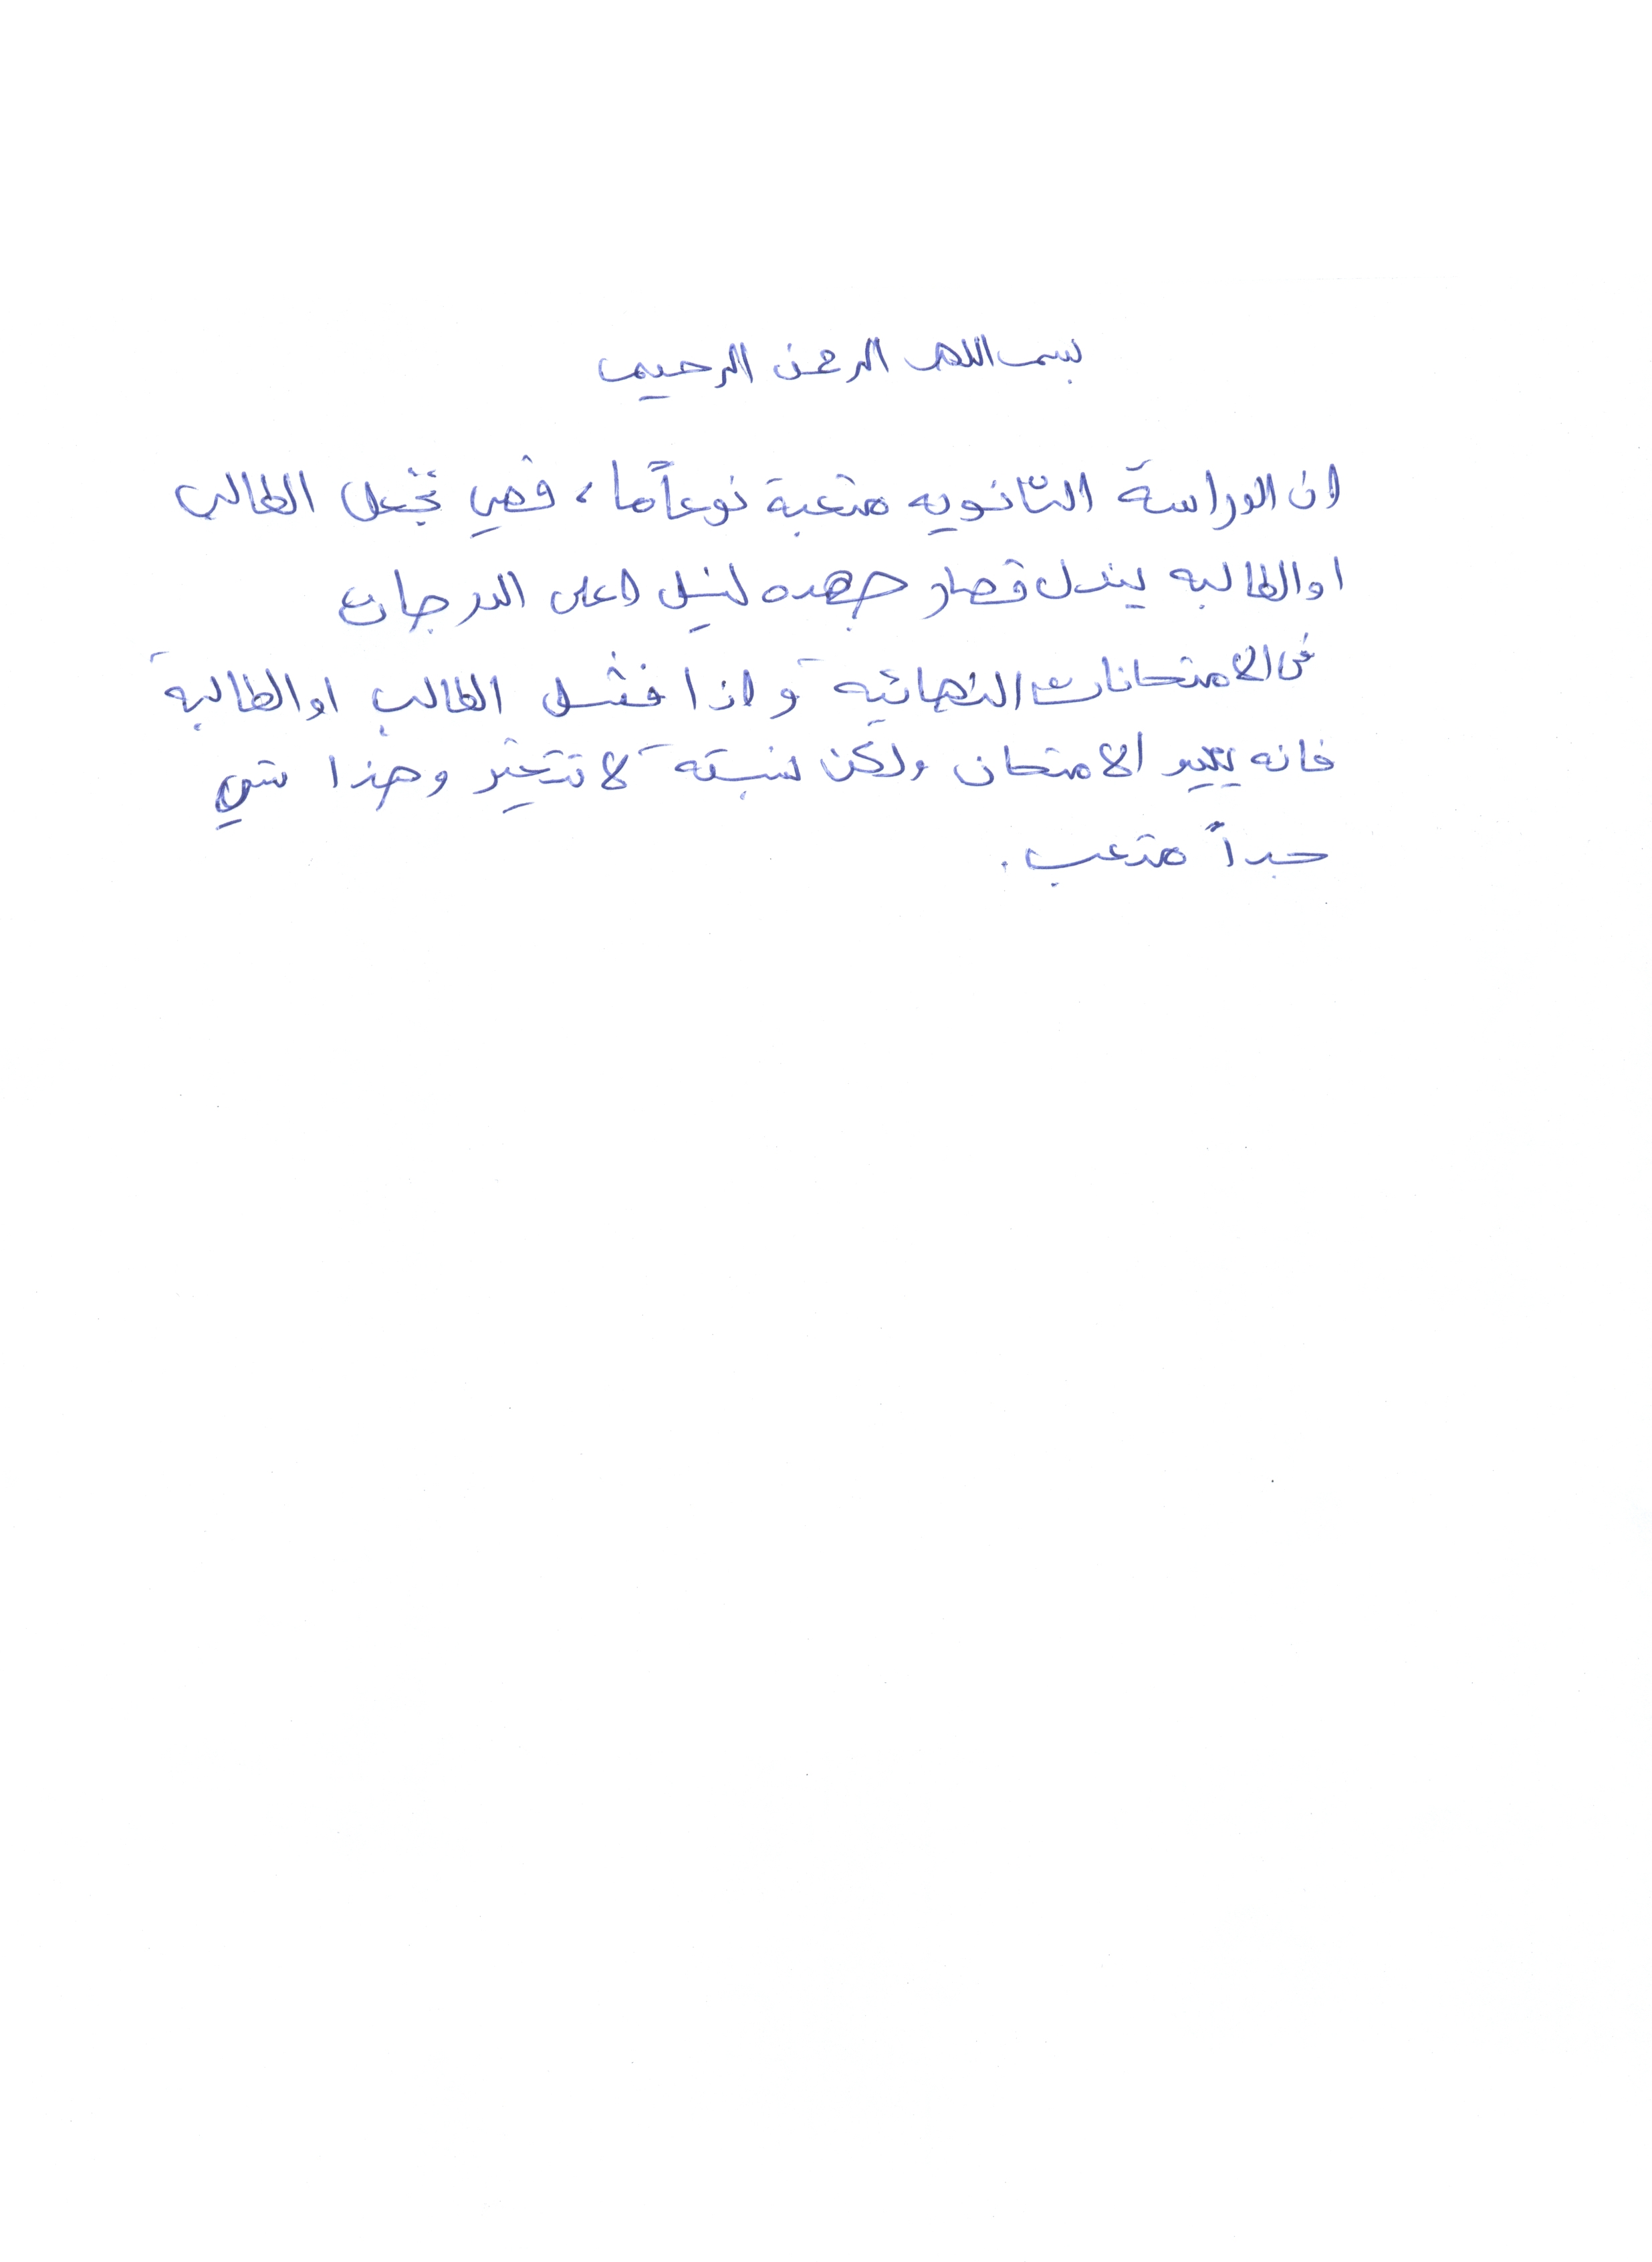 بسم الله الرحمن الرحيم
ان الدراسة الثانويه متعبة نوعاً ما، فهي تجعل الطالب
او الطالبه يبذل قصار جهده لنيل اعلى الدرجات
في الامتحانات النهائيه و اذا فشل الطالب او الطالبة
فانه يعيد الامتحان ولكن نسبته لا تتغير وهذا شي
جداً متعب.